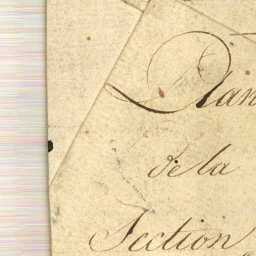 Plan
de la
Section